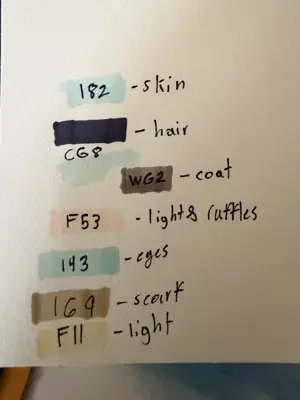 182 - skin
- hair
CG8
WG2 - coat
F53 - light & ruffles
143 - eyes
169 - scarf
F11 - light